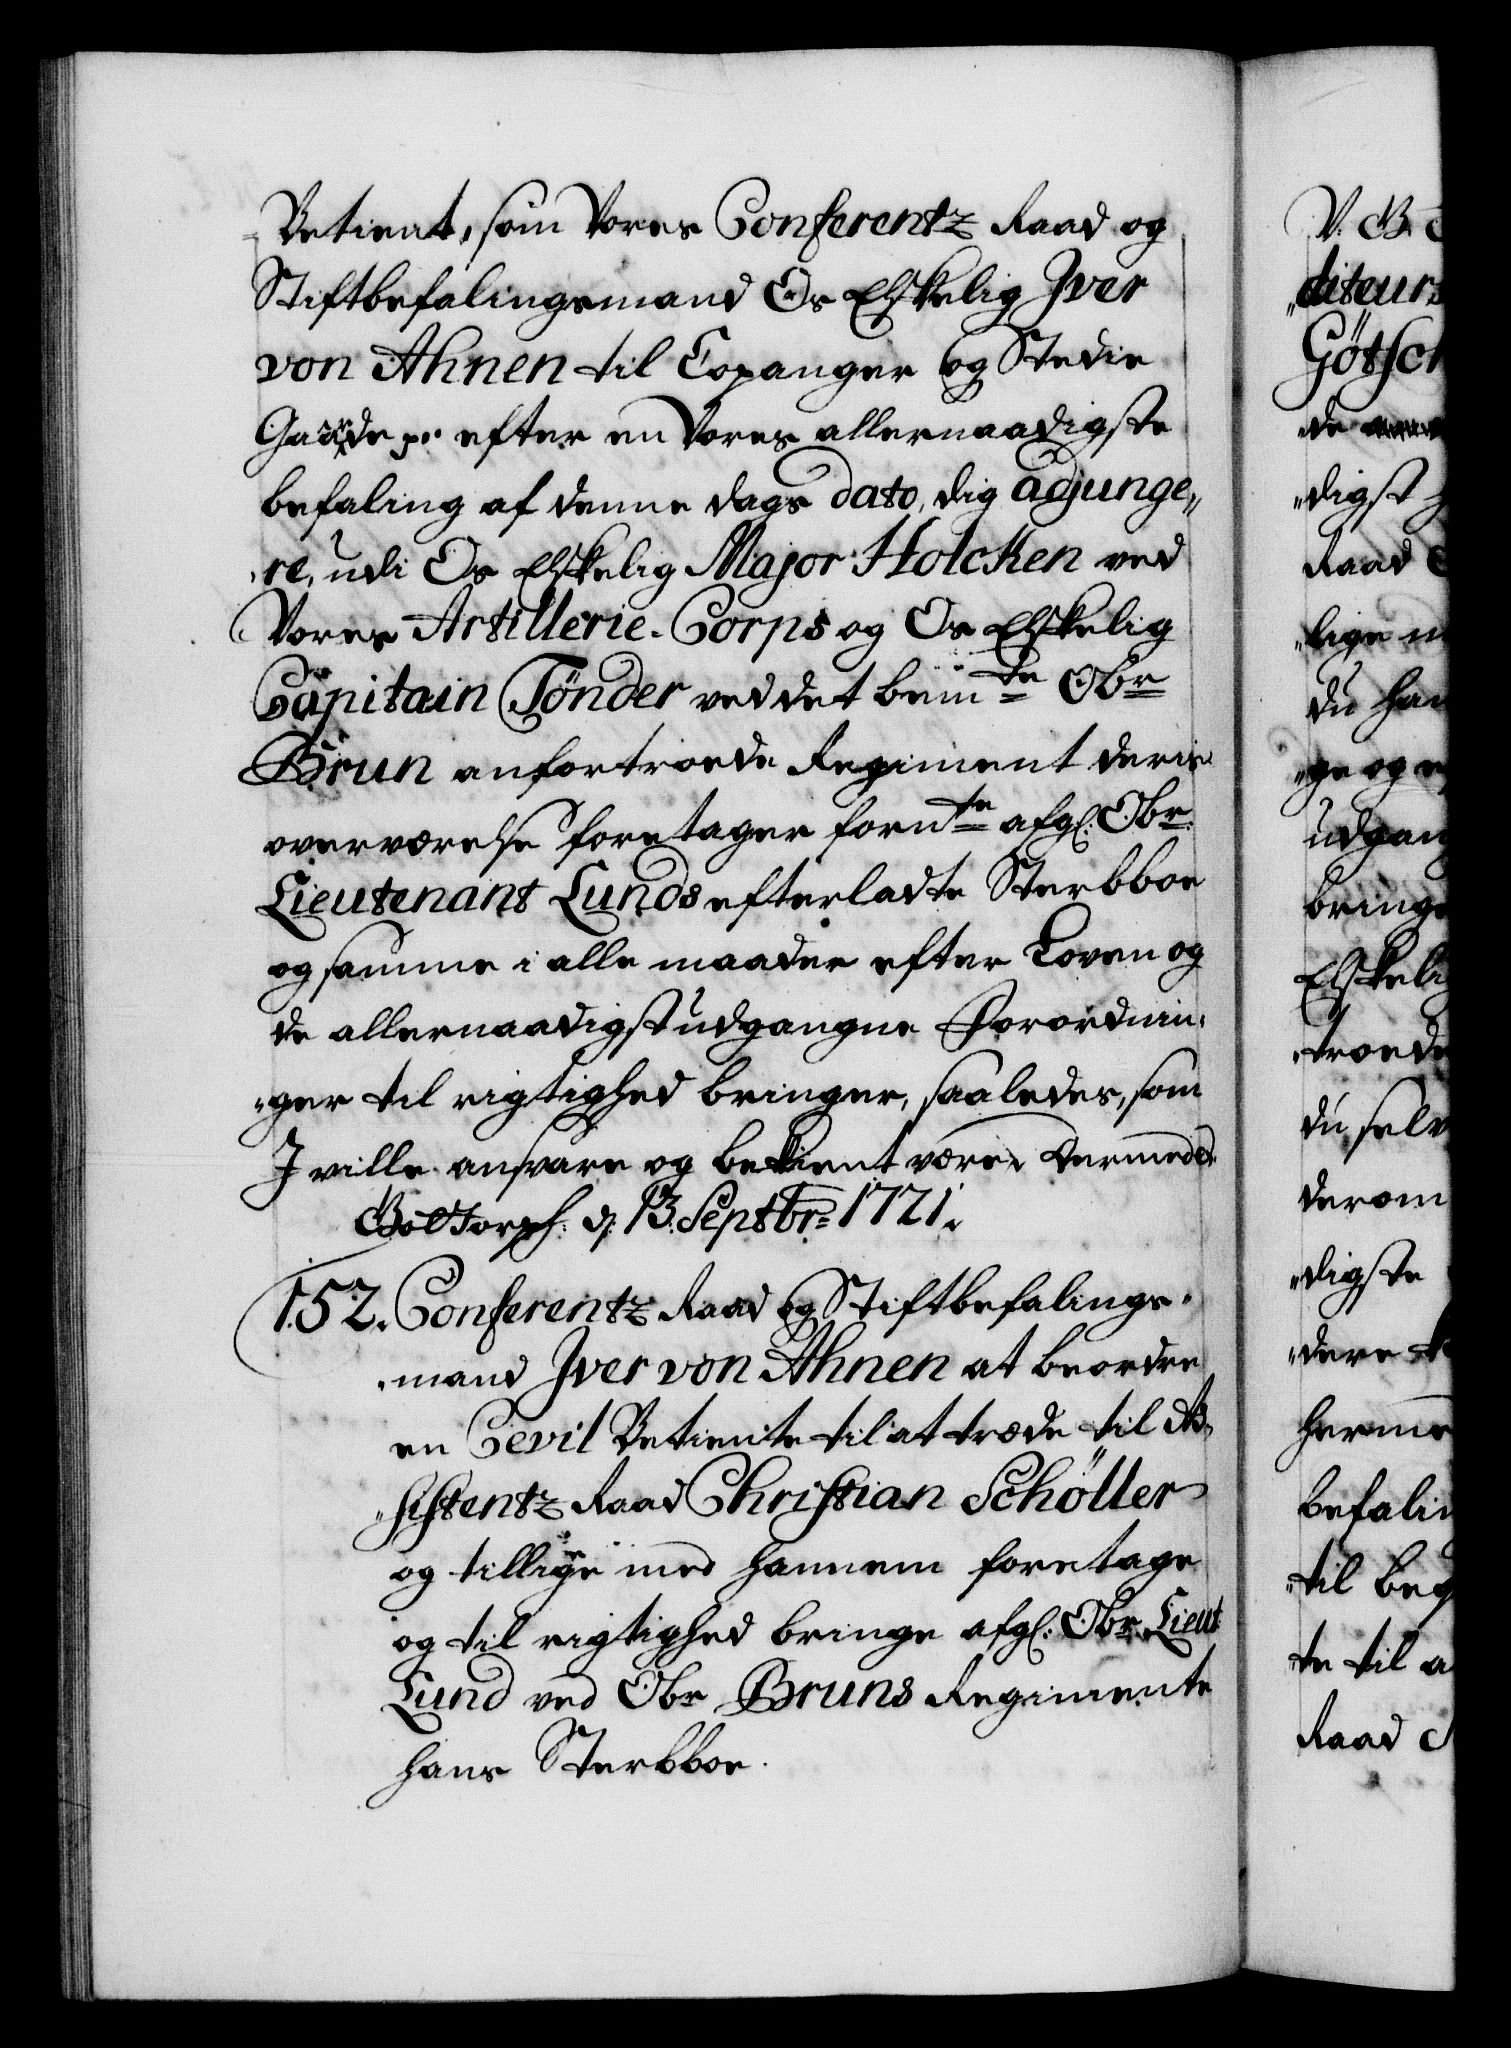 Betient, som Vores Conferentz Raad og
Stiftbefalingsmand Os Elskelig Iver
von Ahnen til Copanger og Stedie
Gaarde pp efter en Vores allernaadigste
befaling af denne dags dato, dig adjunge„
„re, udi Os Elskelig Major Holcken ved
Vores Artillerie-Corps og Os Elskelig
Capitain Tönder ved det bem.te Obr
Brun anfortroede Regiment deris
overværelse foretager forn.te afgl: Obr:
Lieutenant Lunds efterladte Sterbboe
og samme i alle maader efter Loven og
de allernaadigst udgangne Forordnin„
„ger til rigtighed bringer, saaledes, som
I ville ansvare og bekient være. Dermed etc.
Gottorph: d: 13. Septbr= 1721.
152. Conferentz Raad og Stiftbefalings-
„mand Iver von Ahnen at beordre
en Cevil Betiente til at træde til As„
„sistentz Raad Christian Schöller
og tillige med hannem foretage
og til rigtighed bringe afgl: Obr. Lieut
Lund ved Obr Bruns Regimente
hans Sterbboe.
V. G. 
„diteur
Götsch
de
„digst
Raad
„lige
du han
„ge og
udgan
bringe
Elskelig
„troede
du selv
derom
„digste
„dere
herme
befalin
„til beg
te til a
Raad